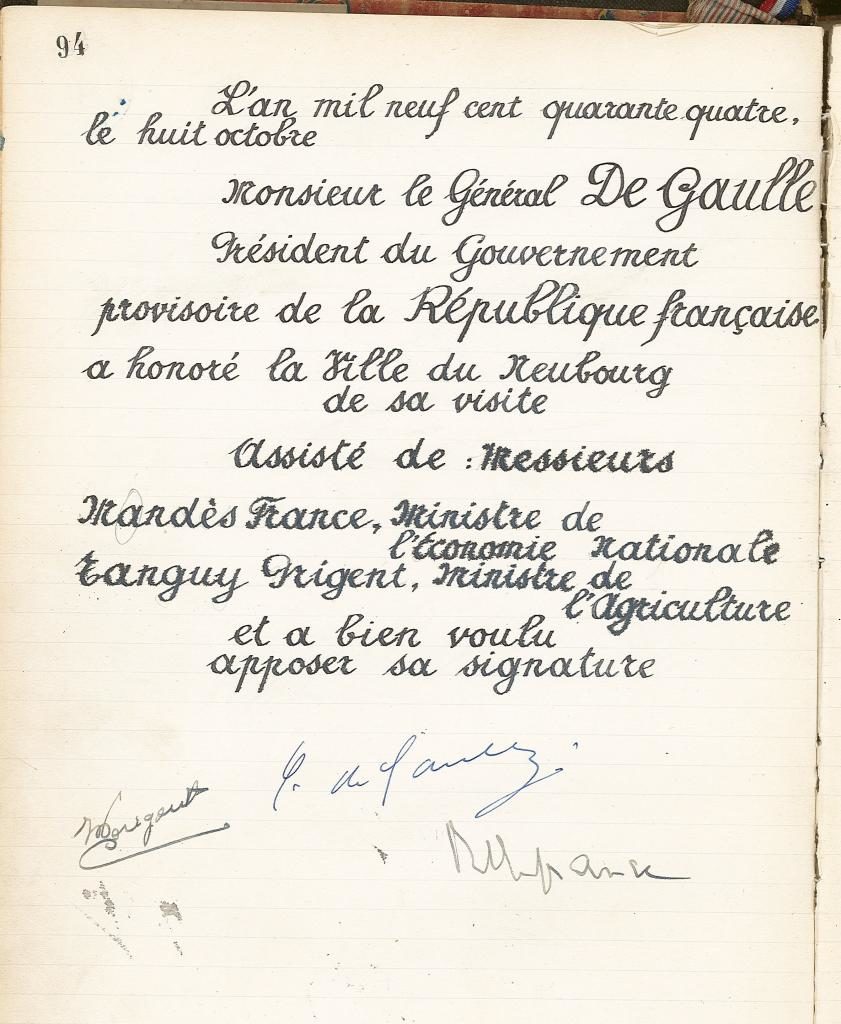 94
L'an mil neuf cent quarante quatre,
le huit octobre
Monsieur le Général De Gaulle
Président du Gouvernement
provisoire de la République française
a honoré la Ville du Neubourg
de sa visite
Assisté de : Messieurs
Mandès France, Ministre de
l'Économie Nationale
Tanguy Prigent, Ministre de
l'Agriculture
et a bien voulu
apposer sa signature
C. de Gaulle